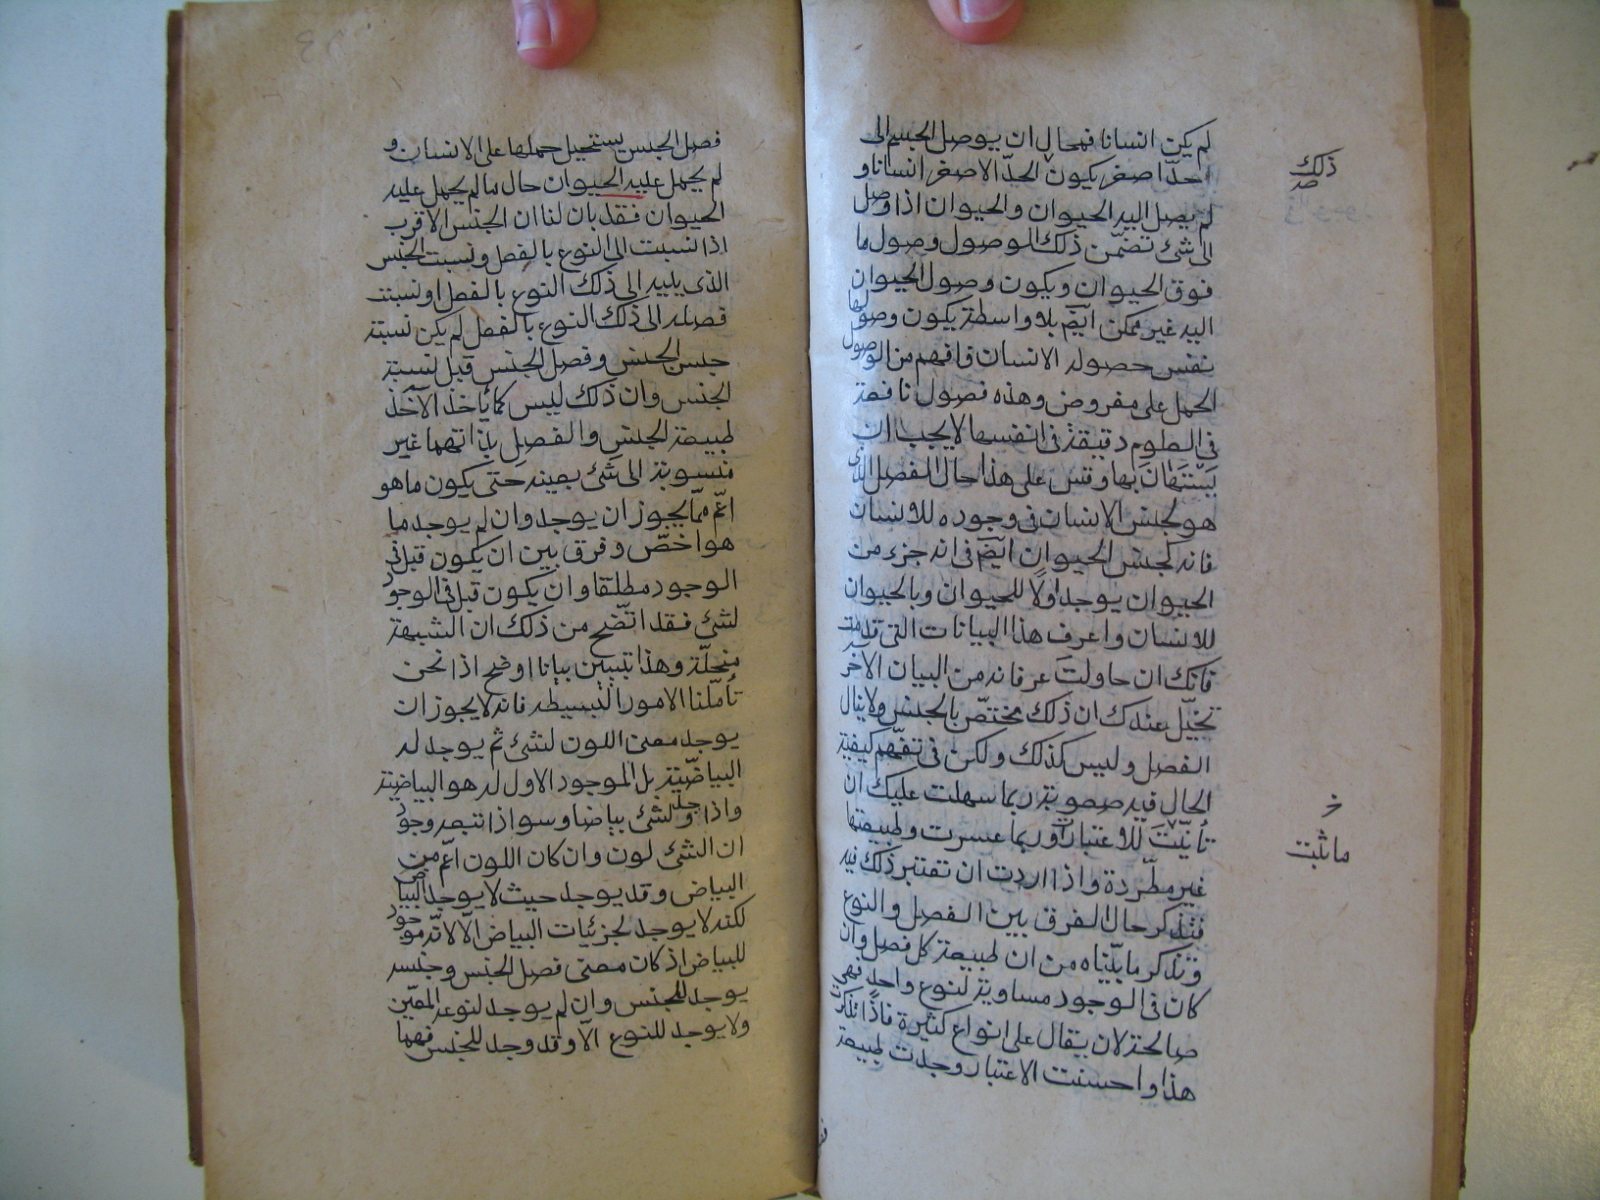 لم يكن انسانا فمحال ان يوصل الجسم الى
ذلك
حدّا اصغر يكون الحدّ الاصغر انسانا و
صح
لم يصل اليه الحيوان والحيوان اذا وصل
الى شئ تضمّن ذلك الوصول وصول ما
فوق الحيوان ويكون وصول الحيوان
اليه غير ممكن ايضم بلا واسطة يكون وصولها
نفس حصوله الانسان فافهم من الوصول
الحمل على مفروض وهذه فصول نافعة
فى العلوم دقيقة فى انفسها لا يجب ان
يستهان بها وقس على هذا حال الفصل الذى
هو لجنس الانسان فى وجوده للانسان
فانه كجنس الحيوان ايضم فى انه جزء من
الحيوان يوجد اولا للحيوان وبالحيوان
للانسان واعرف هذا البيانات التى قدمت
فانك ان حاولت عرفانه من البيان الآخر
تخيّل عندك ان ذلك مختصّ بالجنس ولا ينال
الفصل وليس كذلك ولكن فى تفهّم كيفية
الحال فيه صعوبة ربما سهلت عليك ان
خ
تأتيت للاعتبار وربما عسرت وطبيعتها
ما ثبت
غير مطّردة واذا اردت ان تعتبر ذلك فيه
فتذكر حال الفرق بين الفصل والنوع
وتذكر ما بيّناه من ان طبيعة كل فصل وان
كان فى الوجود مساوية لنوع واحد فهى
صالحة لان يقال على انواع كثيرة فاذا تذكرت
هذا واحسنت الاعتبار وجدت طبيعة
فصل الجنس يستحيل حملها على الانسان و
لم يحمل عليه الحيوان حال ما لم يحمل عليه
الحيوان فقد بان لنا ان الجنس الاقرب
اذا نسبت الى النوع بالفصل ونسبت الجنس
الذى يليه الى ذلك النوع بالفصل او نسبت
فصله الى ذلك النوع بالفصل لم يكن نسبة
جنس الجنس وفصل الجنس قبل نسبة
الجنس وان ذلك ليس كما يأخذ الآخذ
طبيعة الجنس والفصل بذاتهما غير
منسوبة الى شئ بعينه حتى يكون ما هو
اعّم ممّا يجوز ان يوجد وان لم يوجد ما
هو اخصّ وفرق بين ان يكون قبل فى
الوجود مطلقا وان يكون قبل فى الوجود
لشئ فقد اتّضح من ذلك ان الشبهة
منحلّة وهذا تبيين بيانا اوضح اذا نحن
تأمّلنا الامور البسيطة فانه لا يجوز ان
يوجد معنى اللون لشئ ثم يوجد له
البياضيّة بل الموجود الاول له هو البياضيّة
واذا وجد لشئ بياضا وسواذا تتبعه وجود
ان الشئ لون وان كان اللون اعّم من
البياض وقد يوجد حيث لا يوجد البياض
لكنه لا يوجد لجزئيات البياض الّا لانّه موجود
للبياض اذ كان معنى فصل الجنس وجنسه
يوجد للجنس وان لم يوجد لنوعه المعّين
ولا يوجد للنوع الّا وقد وجد للجنس فهما